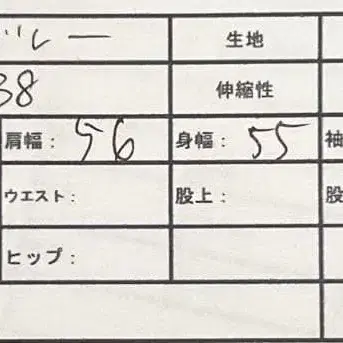 ブルー 生地
38 伸縮性
肩幅： 56 身幅： 55 袖
ウエスト： 股上： 股
ヒップ：